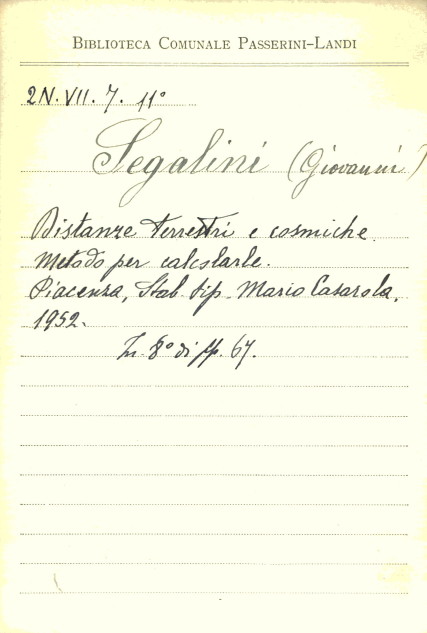 BIBLIOTECA COMUNALE PASSERINI-LANDI
2N. VII. 7. 11°
Segalini (Giovanni)
Distanze terrestri e cosmiche.
Metodo per calcolarle.
Piacenza, Stab. tip. Mario Casarola,
1952.
In 8° di pp. 67.